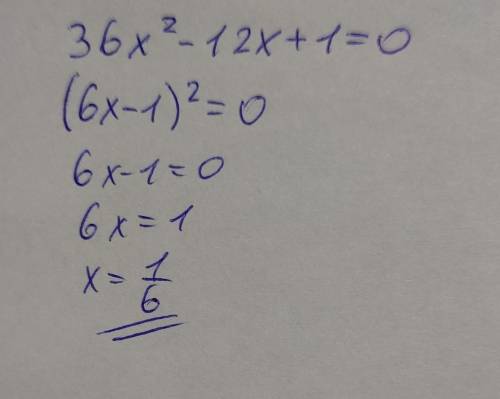 36x² - 12x + 1 = 0
(6x - 1)² = 0
6x - 1 = 0
6x = 1
x = 1/6